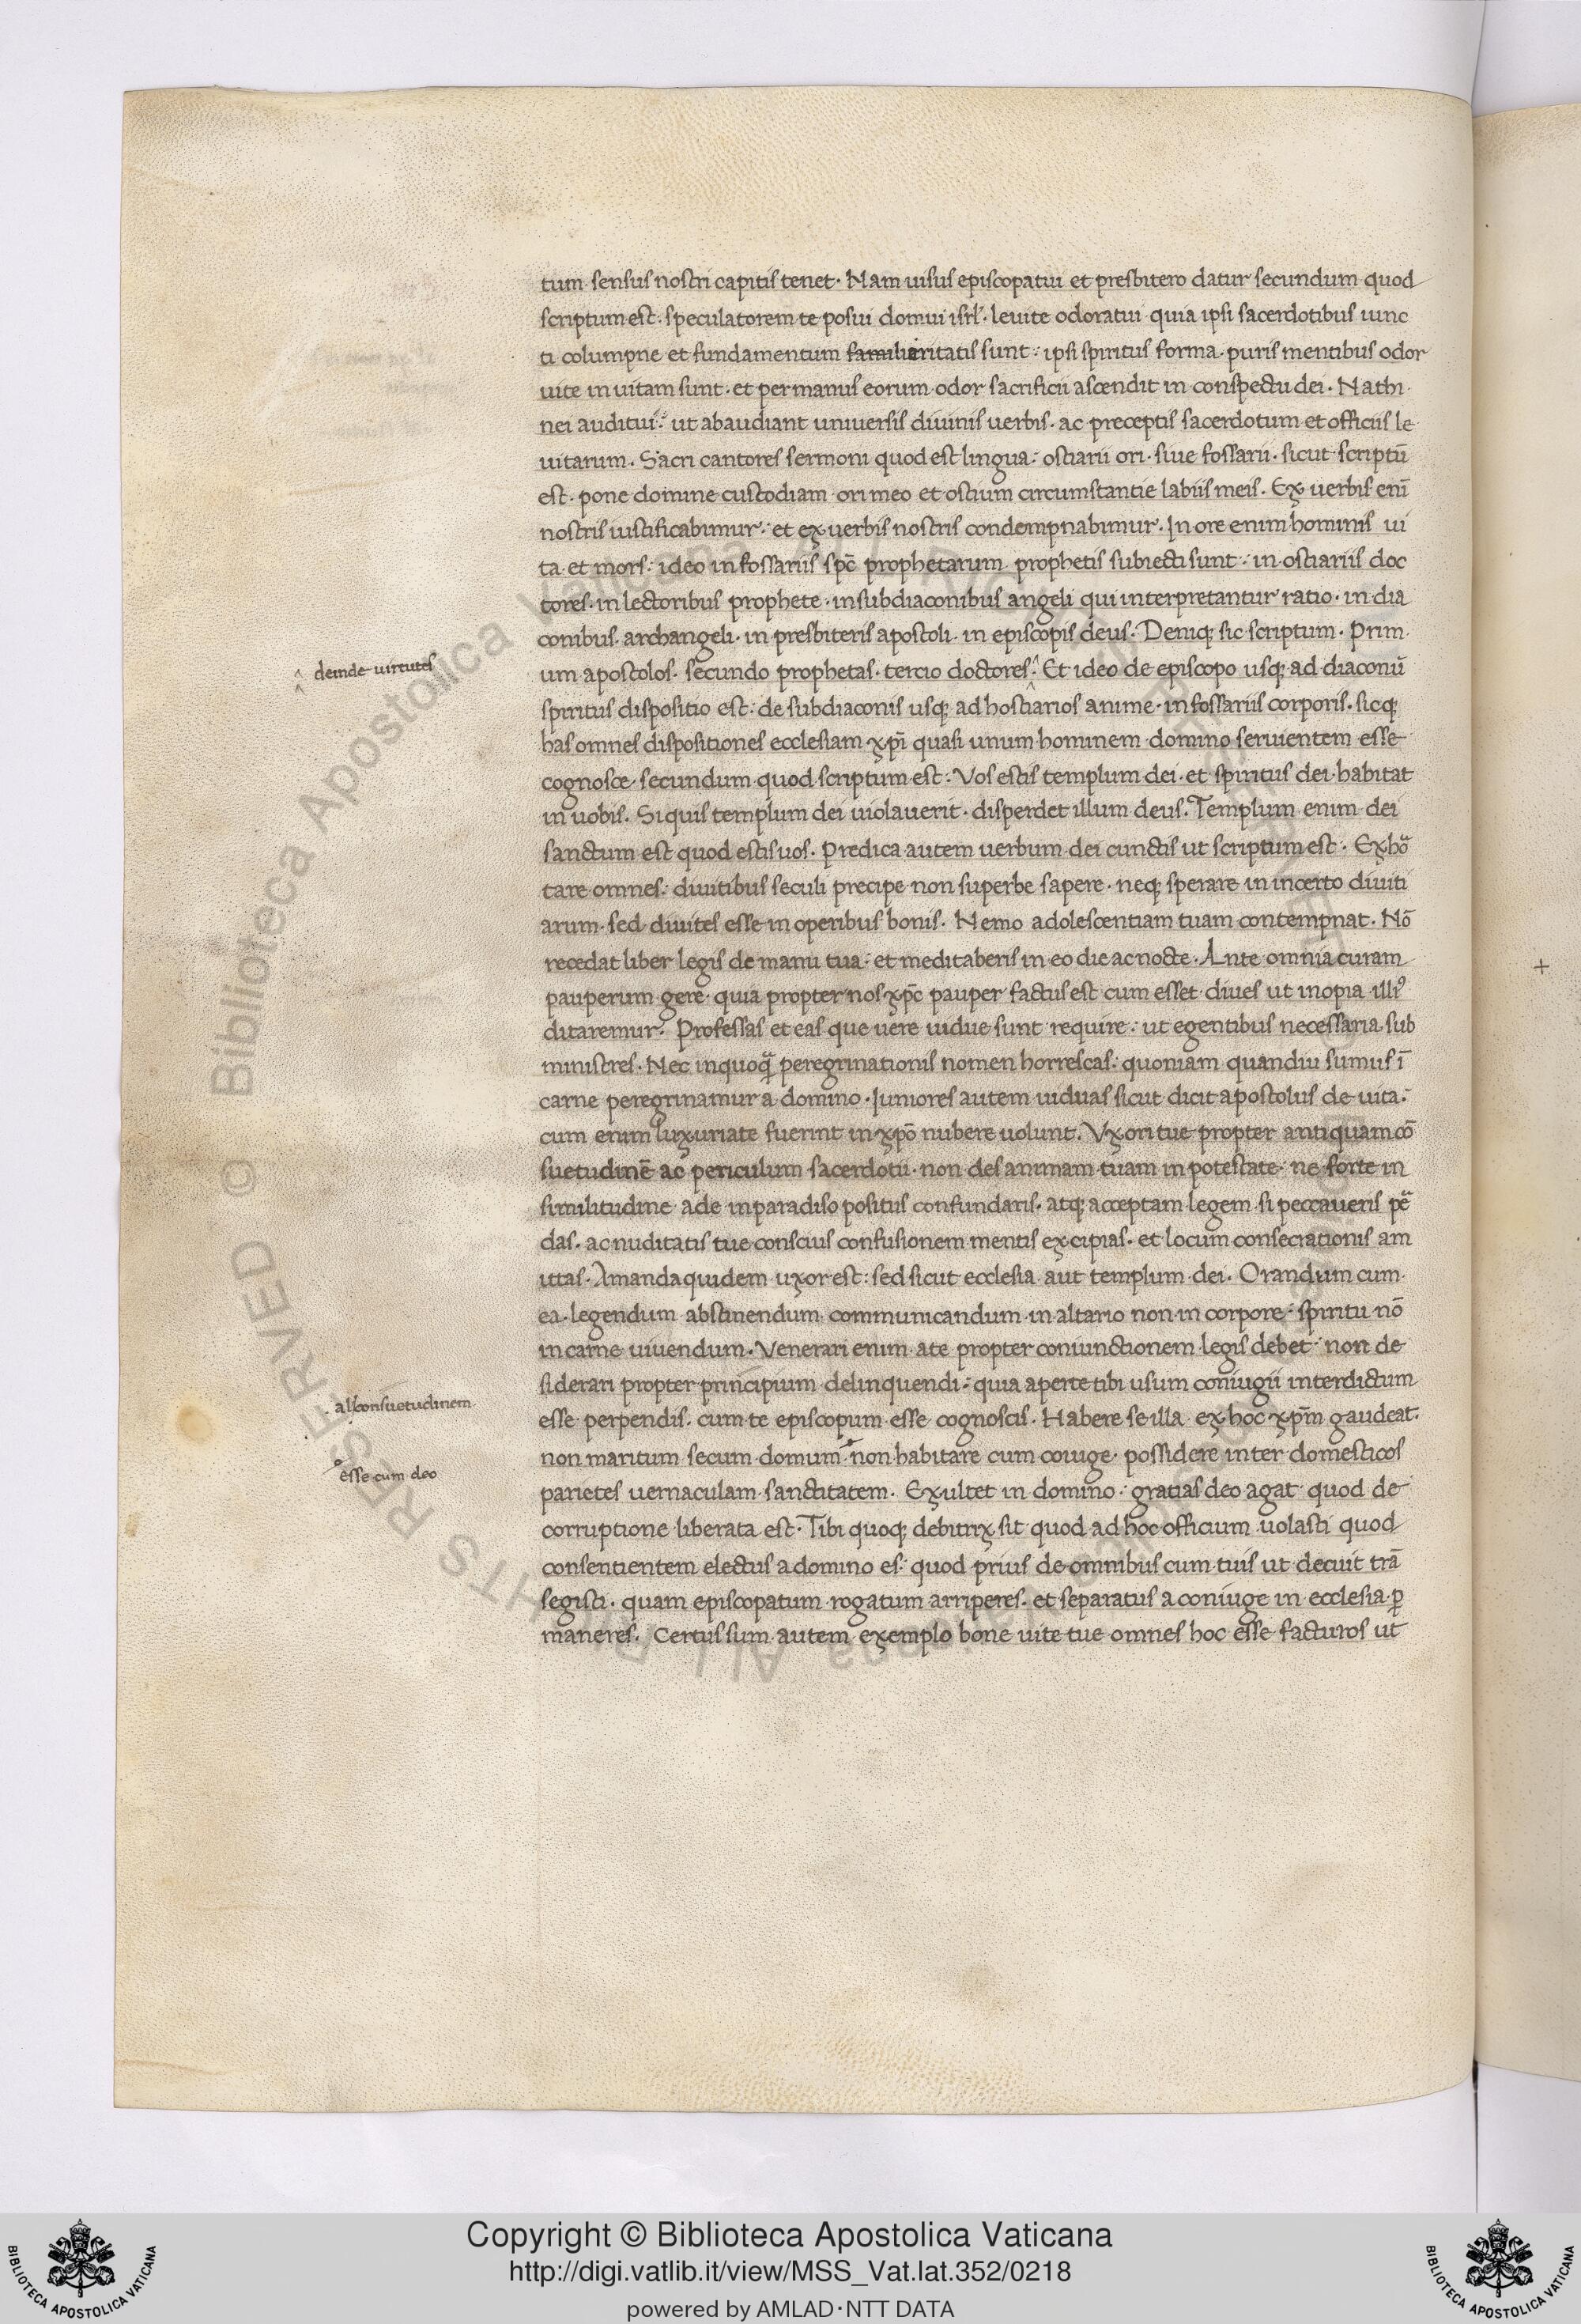 tum sensus nostri capitis tenet. Nam uisus episcopatui et presbitero datur secundum quod
scriptum est: speculatorem te posui domui isrl'. leuite odoratui quia ipsi sacerdotibus iunc
ti columpne et fundamentum familiaritatis sunt: ipsi spiritus forma. puris mentibus odor
uite in uitam sunt. et per manus eorum odor sacrificii ascendit in conspectu dei. Nathi
nei auditui: ut abaudiant uniuersis diuinis uerbis. ac preceptis sacerdotum et officiis le
uitarum. Sacri cantores sermoni quod est lingua: ostiarii ori. siue fossarii. sicut scriptū
est. pone domine custodiam ori meo et ostium circumstantie labiis meis. Ex uerbis eni̅
nostris iustificabimur: et ex uerbis nostris condempnabimur. In ore enim hominis ui
ta et mors: ideo in fossariis sp̅c prophetarum prophetis subiecti sunt: in ostiariis doc
tores. in lectoribus prophete. in subdiaconibus angeli qui interpretantur ratio. in dia
conibus. archangeli. in presbiteris apostoli. in episcopis deus. Deniq; sic scriptum. Prim
deinde uirtutes
um apostolos. secundo prophetas. tercio doctores. Et ideo de episcopo usq; ad diaconū
spiritus dispositio est: de subdiaconis usq; ad hostiarios anime. in fossariis corporis. sicq;
has omnes dispositiones ecclesiam xp̅i quasi unum hominem domino seruientem esse
cognosce secundum quod scriptum est: Vos estis templum dei. et spiritus dei habitat
in uobis. Si quis templum dei uiolauerit. disperdet illum deus. Templum enim dei
sanctum est quod estis uos. Predica autem uerbum dei cunctis ut scriptum est. Exho
tare omnes: diuitibus seculi precipe non superbe sapere. neq; sperare in incerto diuiti
arum. sed diuites esse in operibus bonis. Nemo adolescentiam tuam contempnat. Nō
recedat liber legis de manu tua: et meditaberis in eo die ac nocte. Ante omnia curam
pauperum gere. quia propter nos xp̅c pauper factus est cum esset diues ut inopia illi9
ditaremur. Professas et eas que uere uidue sunt require: ut egentibus necessaria sub
ministres. Nec inquoq̄ peregrinationis nomen horrescas: quoniam quandiu sumus ī
carne peregrinamur a domino. Iuniores autem uiduas sicut dicit apostolus de uita:
cum enim luxuriate fuerint in xp̅o nubere uolunt. Vxori tue propter antiquam cō
suetudinē ac periculum sacerdotii. non des animam tuam in potestate. ne forte in
similitudine ade in paradiso positus confundaris. atq; acceptam legem si peccaueris pe
das. ac nuditatis tue conscius confusionem mentis excipias. et locum consecrationis am
ittas. Amanda quidem uxor est: sed sicut ecclesia aut templum dei. Orandum cum
ea. legendum abstinendum communicandum in altario non in corpore. spiritu nō
in carne uiuendum. Venerari enim ate propter coniunctionem legis debet non de
siderari propter principium delinquendi: quia aperte tibi usum coniugii interdictum
al' consuetudinem
esse perpendis. cum te episcopum esse cognoscis. Habere se illa ex hoc xp̅m gaudeat.
non maritum secum domum non habitare cum coiuge. possidere inter domesticos
esse cum deo
parietes uernaculam sanctitatem. Exultet in domino: gratias deo agat quod de
corruptione liberata est. Tibi quoq; debitrix sit quod ad hoc officium uolasti quod
consentientem electus a domino es: quod prius de omnibus cum tuis ut decuit trā
segisti. quam episcopatum rogatum arriperes. et separatus a coniuge in ecclesia p
maneres. Certus sum autem exemplo bone uite tue omnes hoc esse facturos ut
© Biblioteca Apostolica Vaticana
ALL RIGHTS RESERVED
Copyright © Biblioteca Apostolica Vaticana
http://digi.vatlib.it/view/MSS_Vat.lat.352/0218
powered by AMLAD·NTT DATA
BIBLIOTECA APOSTOLICA VATICANA
BIBLIOTECA APOSTOLICA VATICANA